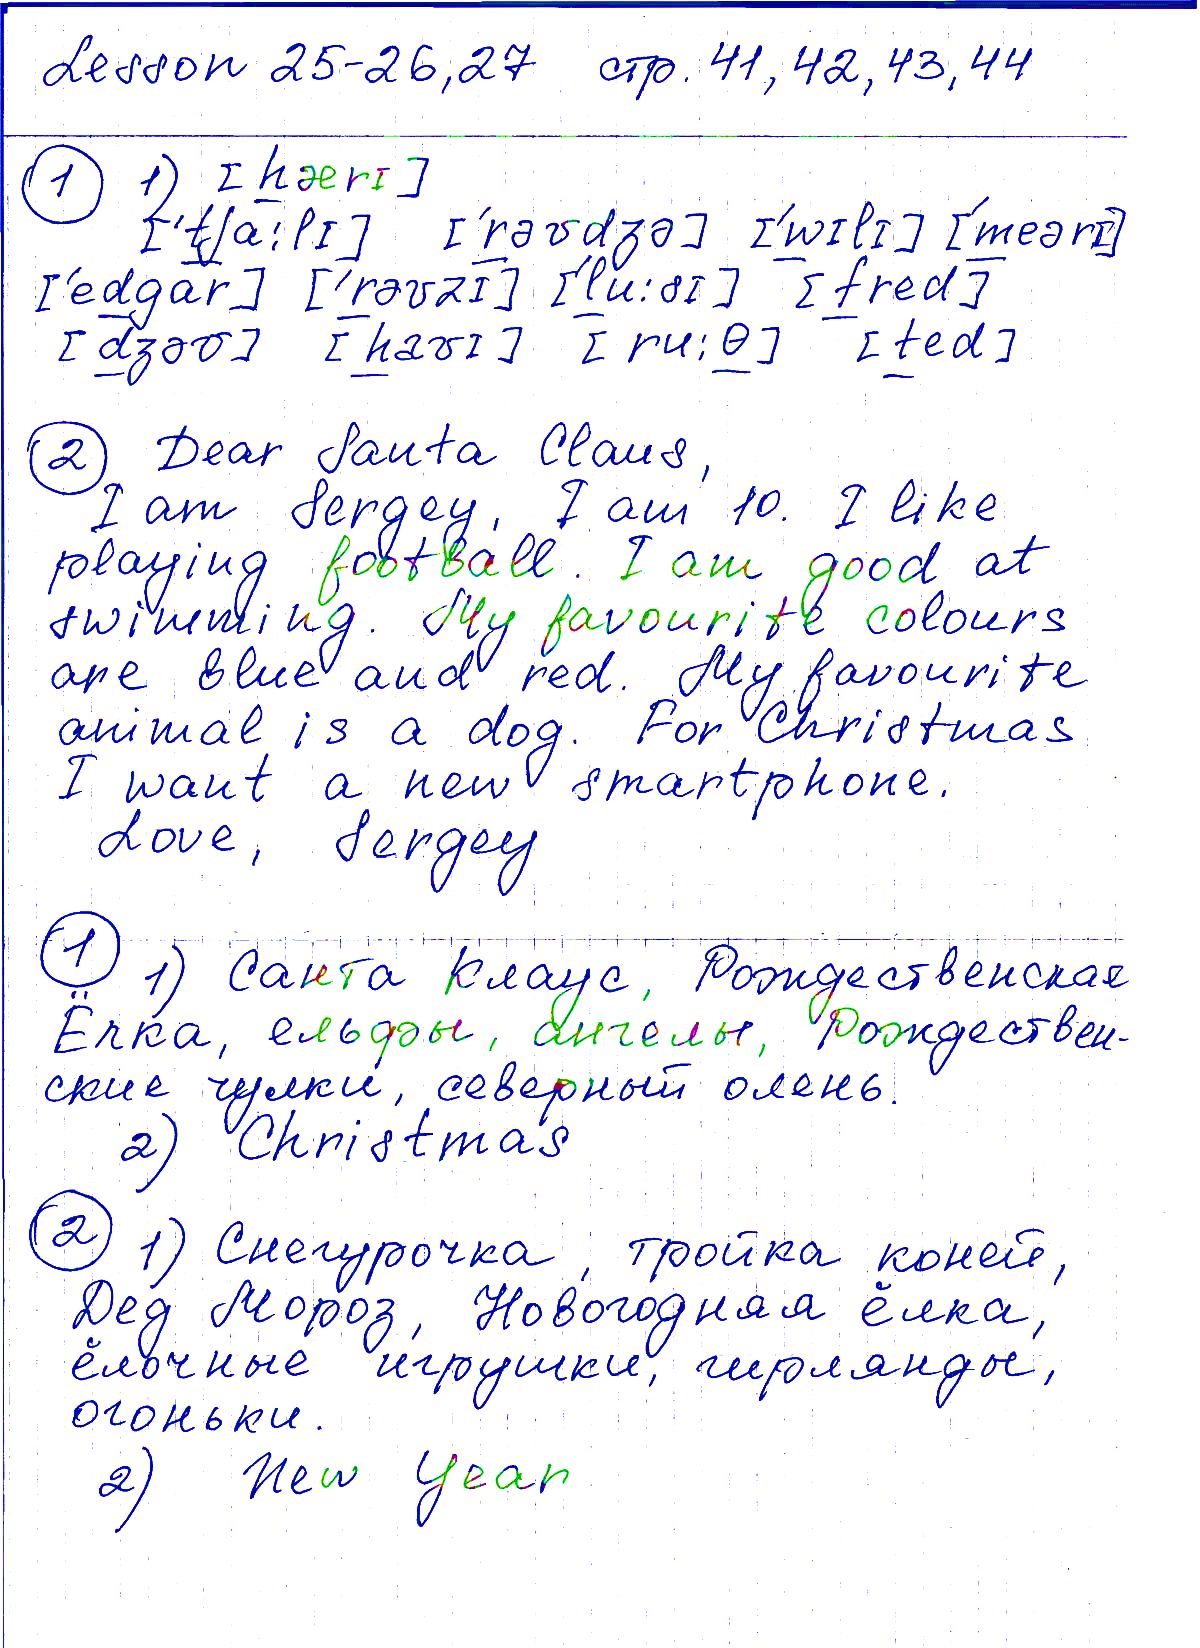 Lesson 25-26, 27 стр. 41, 42, 43, 44
1 1) [hærɪ]
['tʃɑ:lɪ] ['rəʊdʒə] ['wɪlɪ] ['meərɪ]
['edgar] ['rəʊzɪ] ['lu:sɪ] [fred]
[dʒəʊ] [havɪ] [ru:θ] [ted]
2 Dear Santa Claus,
I am Sergey, I am 10. I like
playing football. I am good at
swimming. My favourite colours
are blue and red. My favourite
animal is a dog. For Christmas
I want a new smartphone.
Love, Sergey
1 1) Санта Клаус, Рождественская
Ёлка, ельфы, ангелы, Рождествен-
ские чулки, северный олень.
2) Christmas
2 1) Снегурочка, тройка коней,
Дед Мороз, Новогодняя ёлка,
ёлочные игрушки, гирлянды,
огоньки.
2) New Year